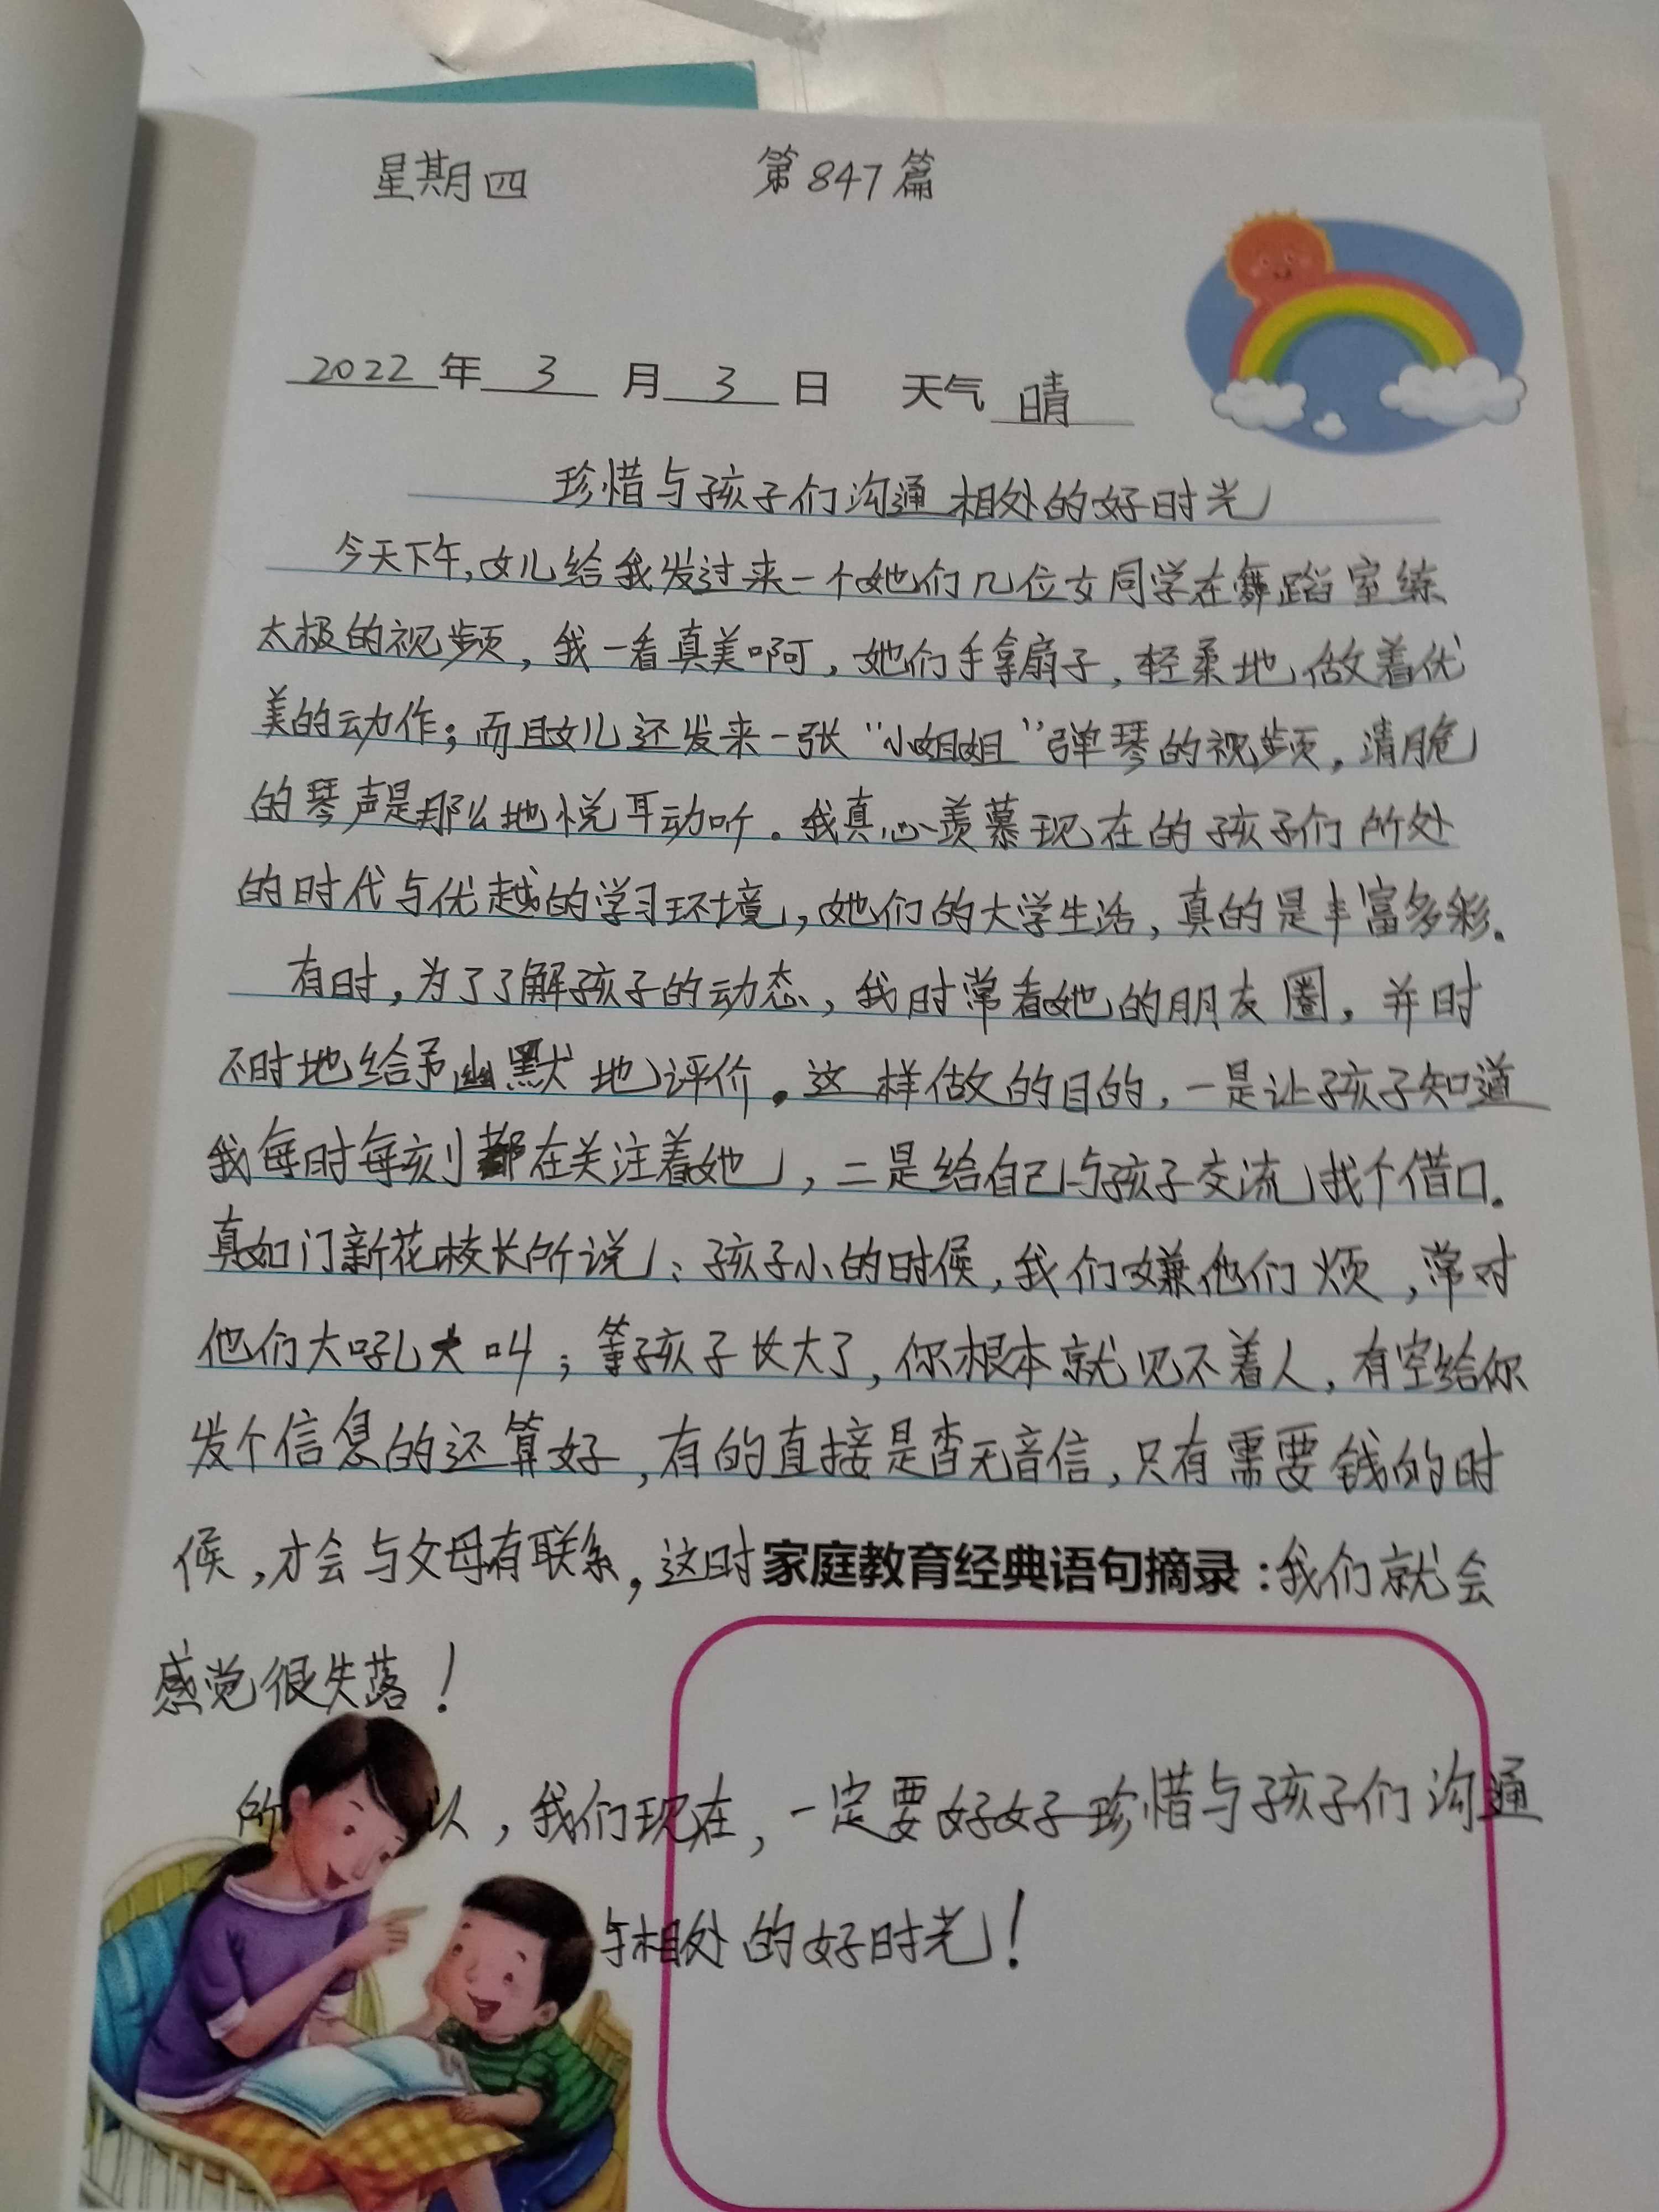 星期四 第847篇
2022年 3 月 3 日 天气 晴
珍惜与孩子们沟通相处的好时光
今天下午,女儿给我发过来一个她们几位女同学在舞蹈室练
太极的视频，我一看真美啊，她们手拿扇子，轻柔地做着优
美的动作；而且女儿还发来一张“小姐姐”弹琴的视频，清脆
的琴声是那么地悦耳动听。我真心羡慕现在的孩子们所处
的时代与优越的学习环境，她们的大学生活，真的是丰富多彩。
有时，为了了解孩子的动态，我时常看她的朋友圈，并时
不时地给予幽默地评价。这样做的目的，一是让孩子知道
我每时每刻都在关注着她，二是给自己与孩子交流找个借口。
真如门新花校长所说：孩子小的时候，我们嫌他们烦，常对
他们大吼大叫；等孩子长大了，你根本就见不着人，有空给你
发个信息的还算好，有的直接是杳无音信，只有需要钱的时
候，才会与父母有联系，这时家庭教育经典语句摘录：我们就会
感觉很失落！
所以，我们现在，一定要好好珍惜与孩子们沟通
与相处的好时光！